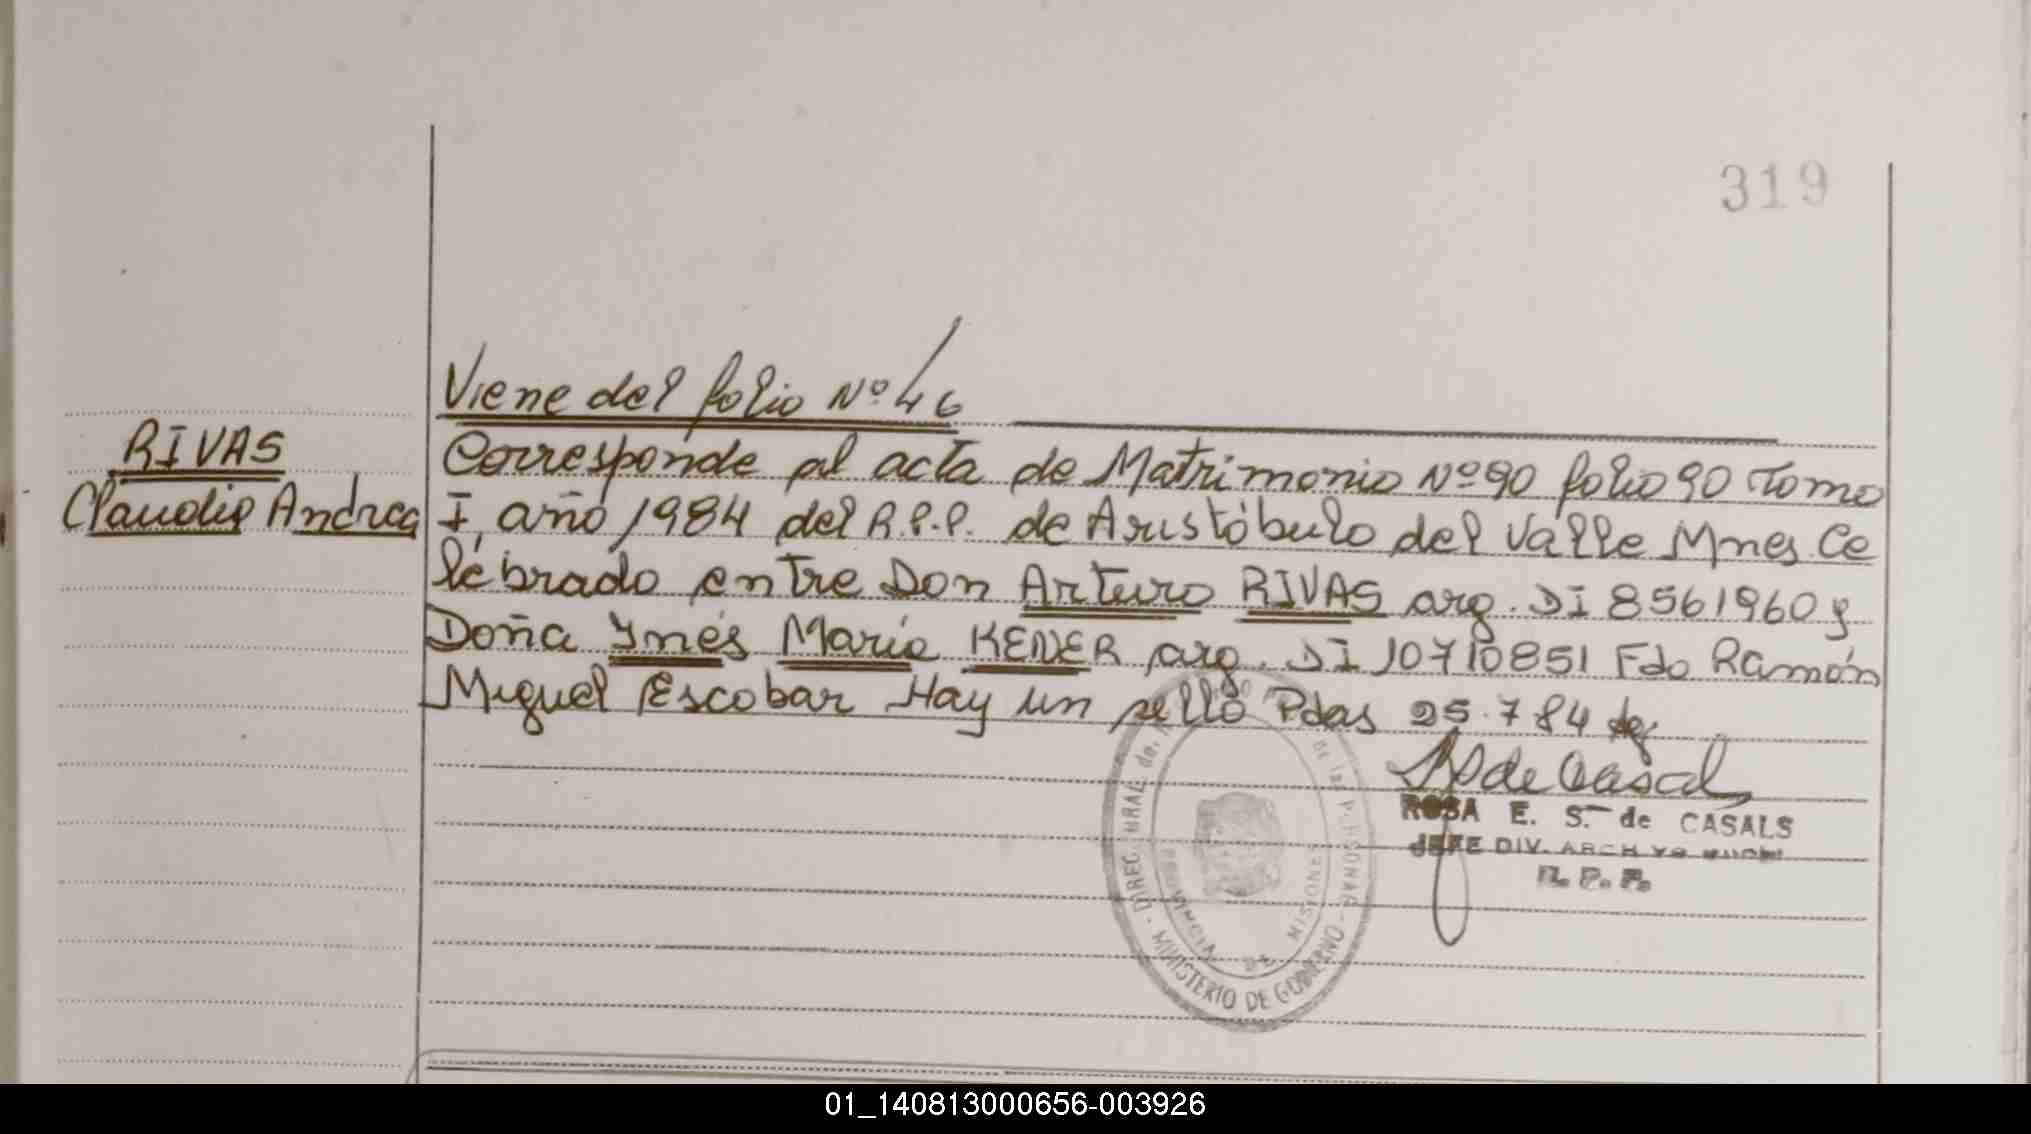 319
Viene del folio Nº 46
RIVAS
Claudia Andrea
Corresponde al acta de Matrimonio Nº 90 folio 90 Tomo
I, año 1984 del R.P.P. de Aristóbulo del Valle Mnes. Ce
lebrado entre Don Arturo RIVAS arg. DI 8561960 y
Doña Ynés María KENER arg. DI 10710851 Fdo Ramón
Miguel Escobar Hay un sello Pdas 25.784
de Casals
ROSA E. S. de CASALS
JEFE DIV.
R. P. P.
DIREC. GRAL de. R. DE LAS PERSONAS
PROVINCIA DE MISIONES
MINISTERIO DE GOBIERNO
01_140813000656-003926